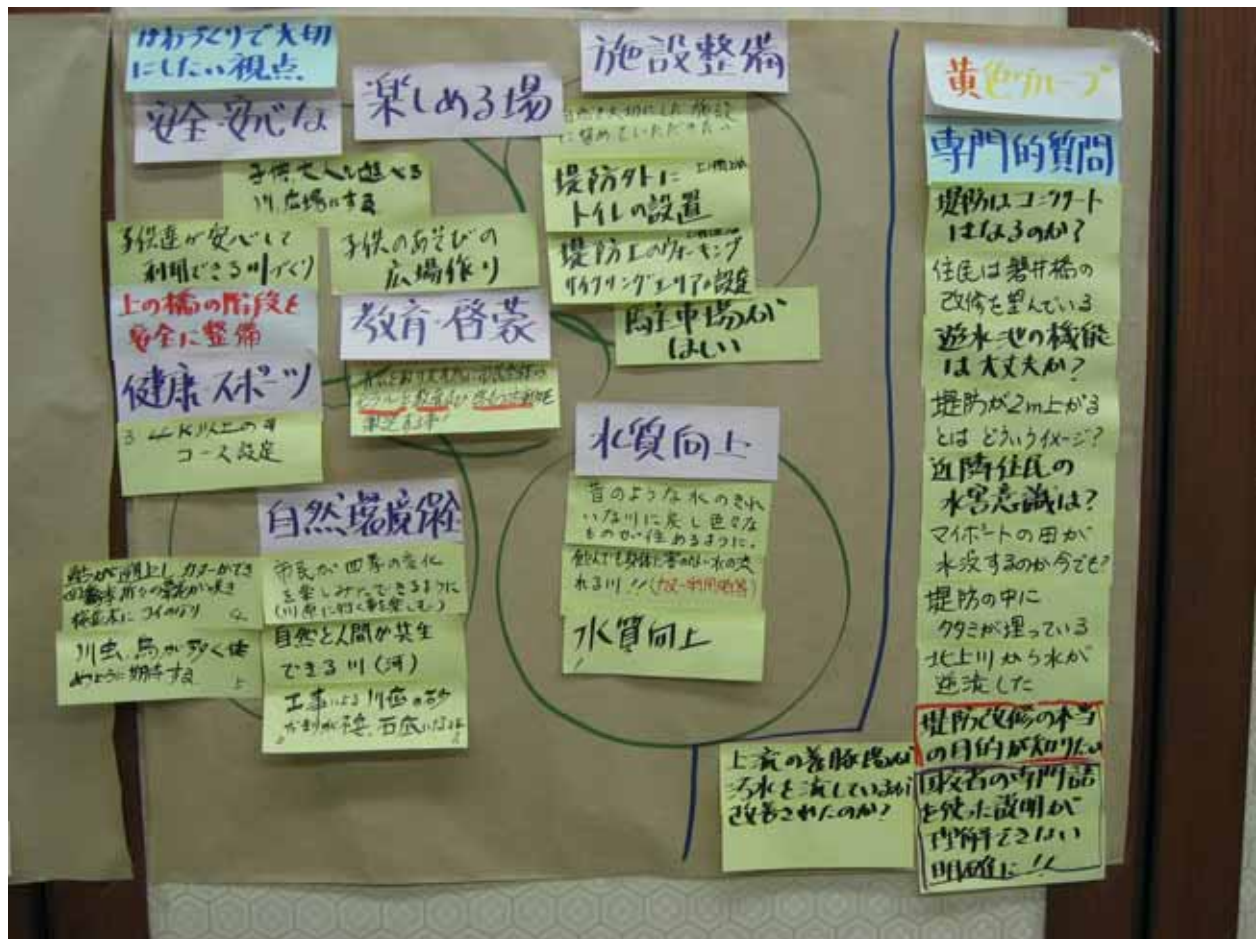 かわづくりで大切
にしたい視点
安全・安心な
楽しめる場
施設整備
子供大人も遊べる
川、広場にする
子供達が安心して
利用できる川づくり
上の橋の階段を
安全に整備
子供のあそびの
広場作り
自然を大切にした施設
に努めていただきたい
堤防外に
トイレの設置
堤防上のウォーキング
サイクリングエリアの設定
駐車場が
ほしい
教育・啓蒙
健康スポーツ
コース設定
水質向上
昔のような水のきれ
いな川に戻し色々な
ものが住めるように。
飲んでも身体に害のない水の流
れる川!!
水質向上
自然環境保全
市民が四季の変化
を楽しみにできるように
(川原に行く事を楽しむ)
自然と人間が共生
できる川(河)
工事による川底の砂
川虫、鳥が多く住
めように期待する
黄色グループ
専門的質問
堤防はコンクリート
になるのか?
住民は磐井橋の
改修を望んでいる
遊水地の機能
は大丈夫か?
堤防が2m上がる
とはどういうイメージ?
近隣住民の
水害意識は?
マイボートの田が
水没するのか今でも?
堤防の中に
タタミが埋っている
北上川から水が
逆流した
堤防改修の本当
の目的が知りたい
を使った説明が
理解できない
明確に!!
上流の養豚場が
汚水を流しているが
改善されたのか?